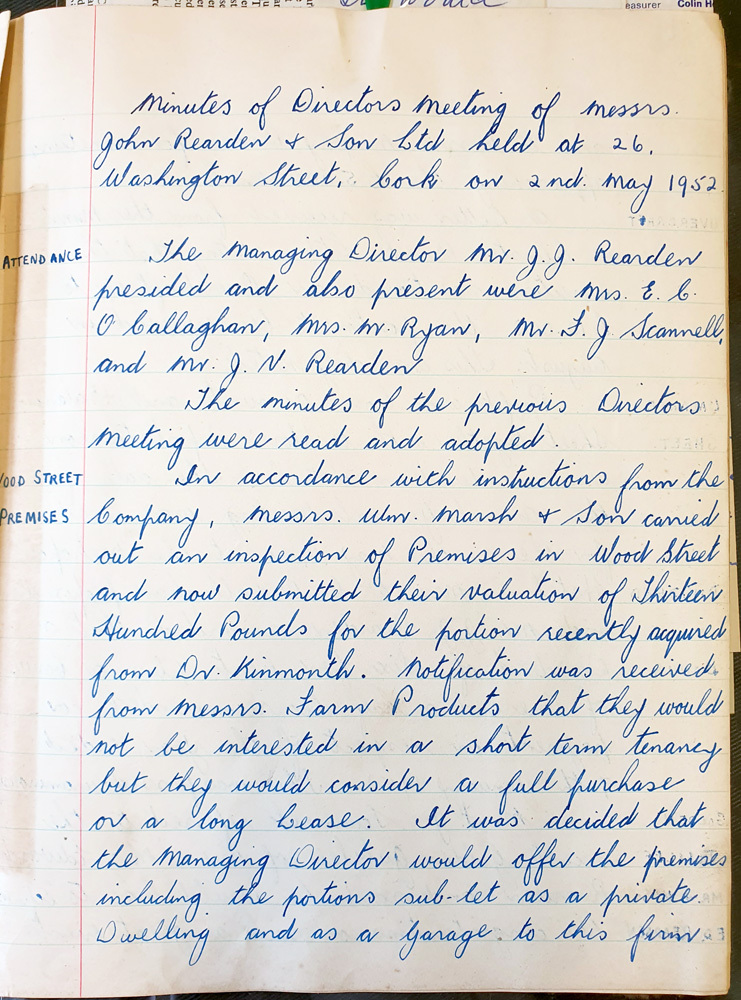 easurer Colin H
Minutes of Directors Meeting of Messrs.
John Rearden & Son Ltd held at 26,
Washington Street, Cork on 2nd. May 1952.
ATTENDANCE The Managing Director Mr. J.J. Rearden
presided and also present were Mrs. E. C.
O'Callaghan, Mrs. M. Ryan, Mr. F. J. Scannell,
and Mr. J. V. Rearden
The minutes of the previous Directors
Meeting were read and adopted.
WOOD STREET In accordance with instructions from the
PREMISES Company, Messrs. Wm. Marsh & Son carried
out an inspection of Premises in Wood Street
and now submitted their valuation of Thirteen
Hundred Pounds for the portion recently acquired
from Dr. Kinmonth. Notification was received
from Messrs. Farm Products that they would
not be interested in a short term tenancy
but they would consider a full purchase
or a long Lease. It was decided that
the Managing Director would offer the premises
including the portions sub-let as a private
Dwelling and as a Garage to this firm.